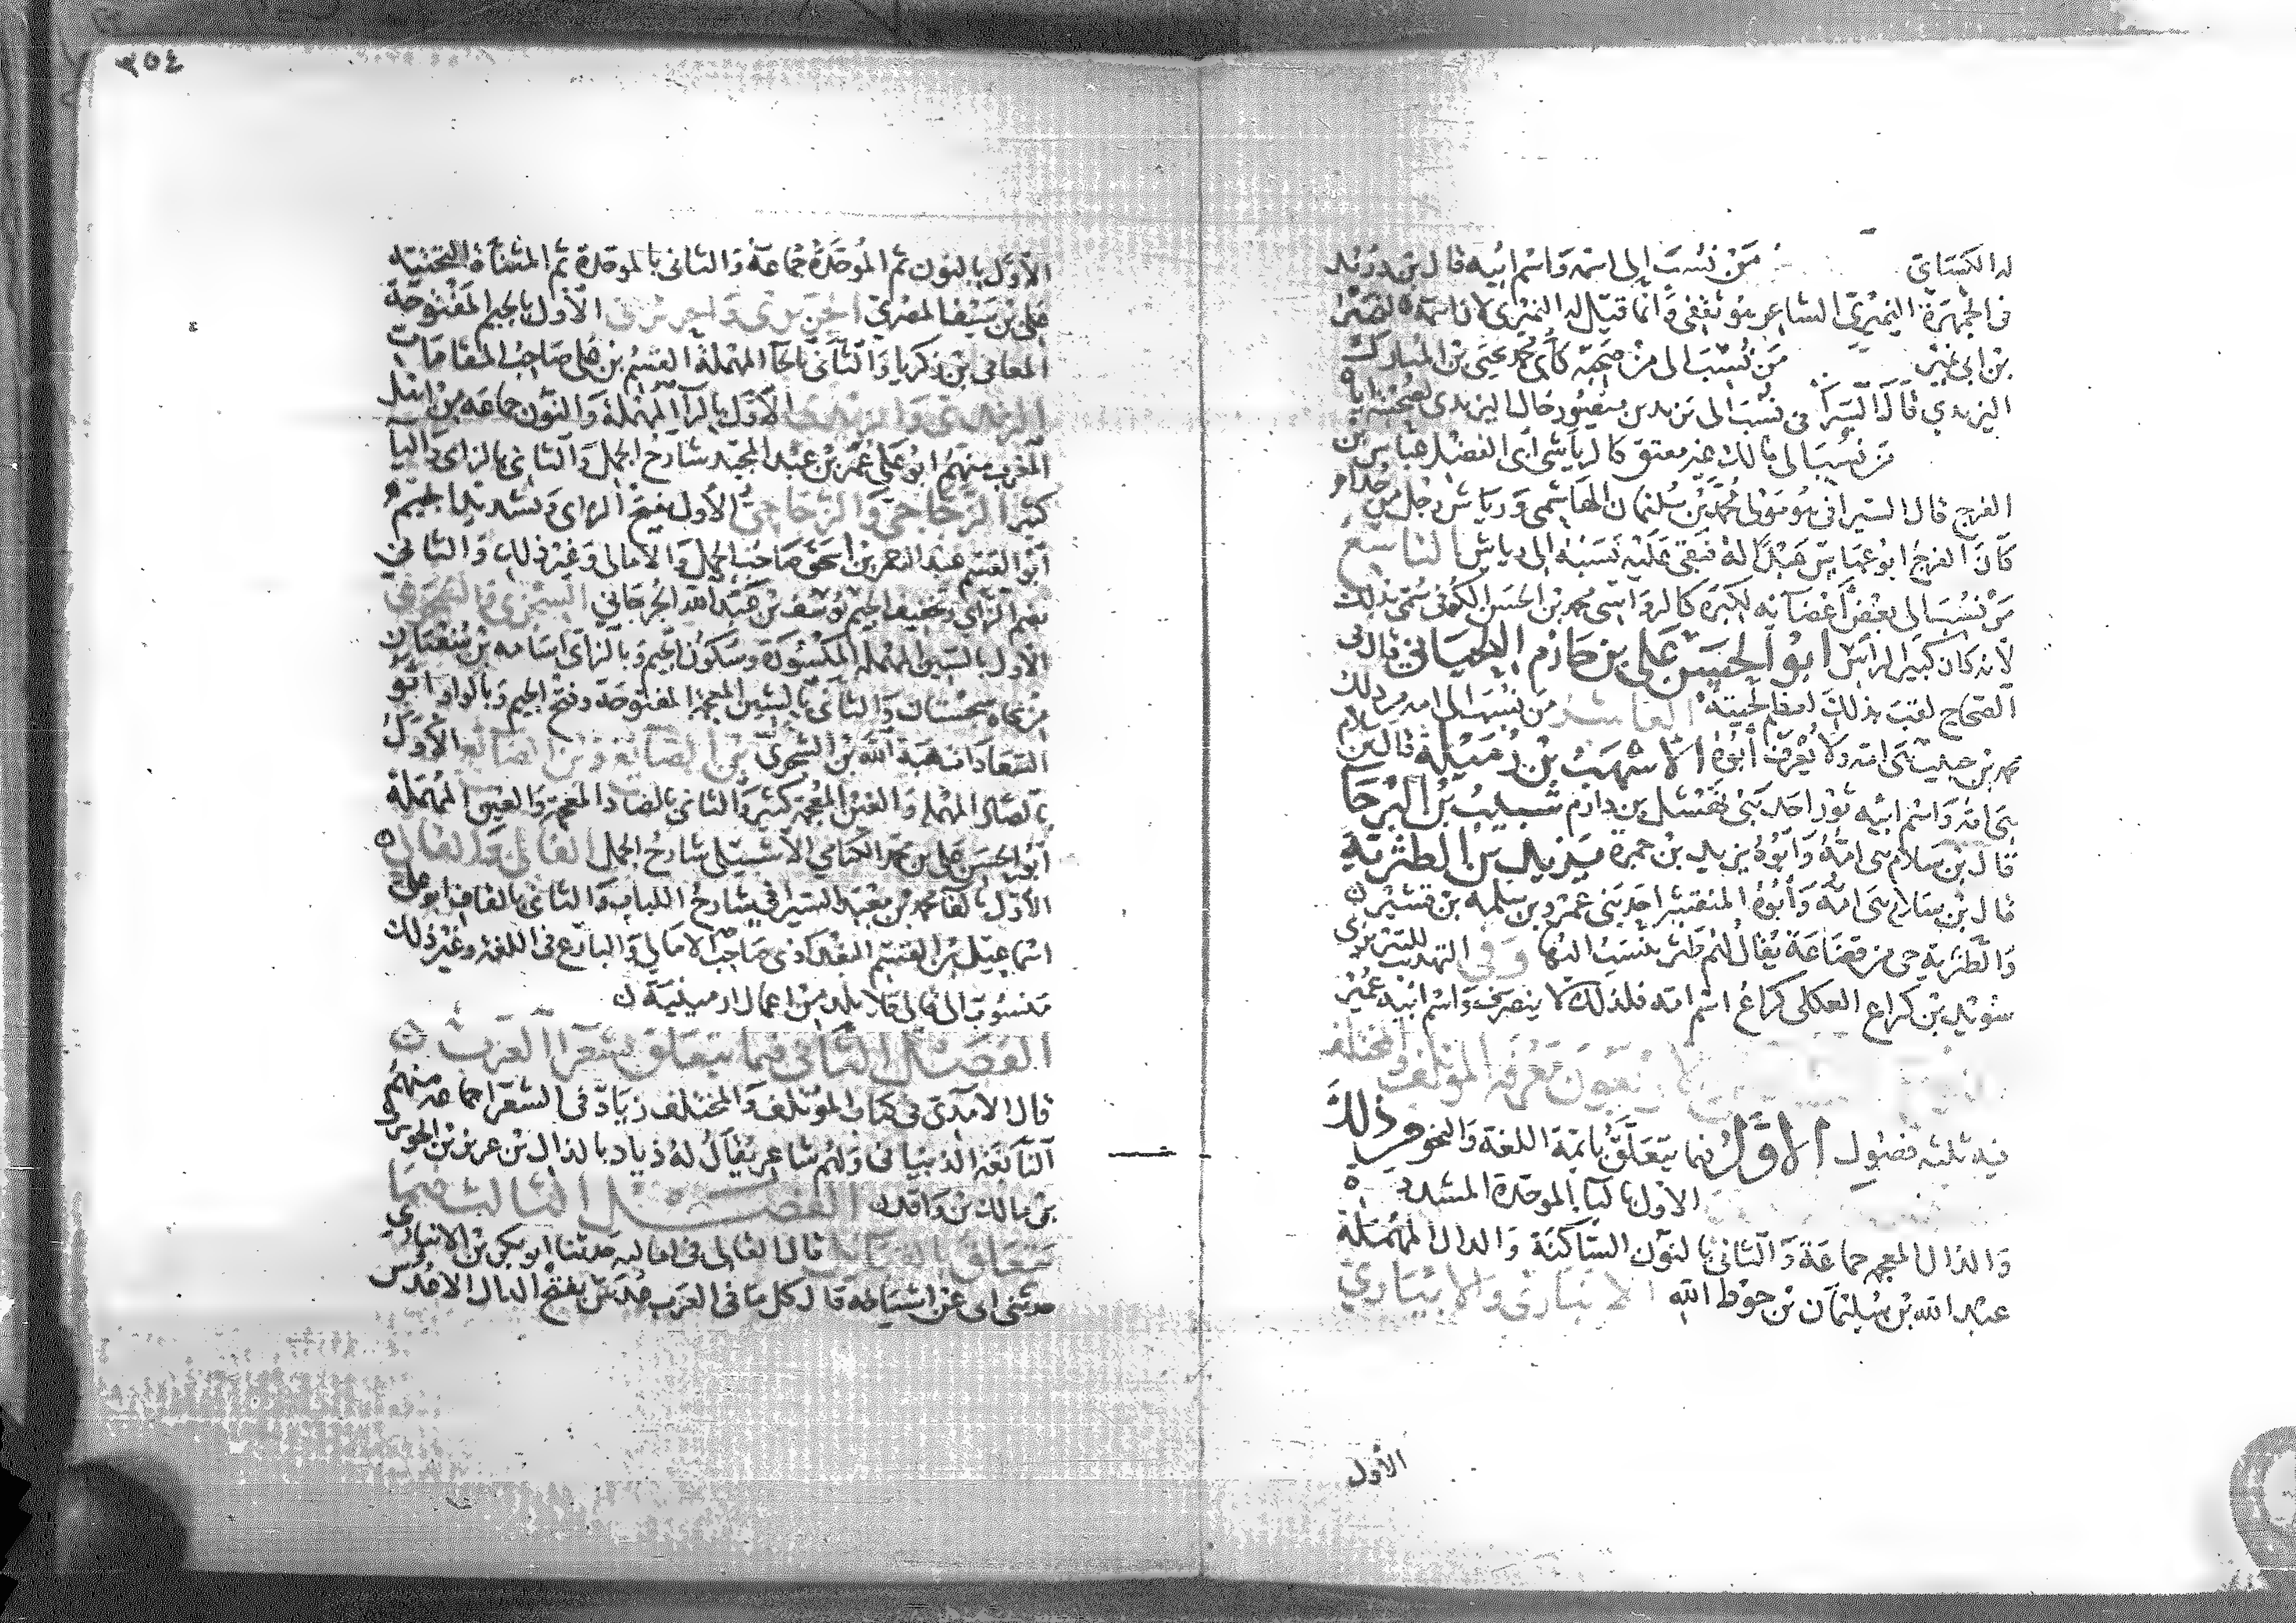 له الكسائي من نسب إلى اسمه واسم ابيه قال بن دريد
في الجمهرة النميري الشاعر هو ثقفي وانما قيل له النميري لان اسمه
بن ابي نمير من نسب الى من صحبه كأبي محمد يحيى بن المبارك
اليزيدي قال السيرافي نسب الى يزيد بن منصور خال اليزيدي لصحبته اياه
من نسب الى مالك غير معتق كالرياشي أبي الفضل عباس بن
الفرج قال السيرافي هو مولى محمد بن سليمان الهاشمي ورياش رجل من جذام
كان الفرج ابو عباس عبدا له فبقي عليه نسبه الى رياش التاسع
من نسب الى بعض أعضائه لكبره كالرواسي محمد بن الحسن الكوفي سمي بذلك
لأنه كان كبير الراس ابو الحسن علي بن حازم اللحياني قال في
الصحاح لقب بذلك لعظم لحيته العاشر من نسب الى امه من ذلك
محمد بن حبيب هي امه ولا يعرف أبوه الأشهب بن رميلة قال بن سلام
هي امه واسم ابيه ثور احد بني نهشل بن دارم شبيب بن البرصا
قال بن سلام هي امه وابوه يزيد بن حمزة يزيد بن الطثرية
قال بن سلام هي امه وأبوه المنتشر احد بني عمرو بن سلمه بن قشير
والطثرية حي من قضاعة يقال لهم طثر ينسب اليها وفي التهذيب للتبريزي
سويد بن كراع العكلي كراع اسم امه فلذلك لا ينصرف واسم ابيه عمير
والاربعون معرفة المؤتلف والمختلف
فيه ثلثه فصول الاول فيما يتعلق بائمة اللغة والنحو فمن ذلك
الاول بالبا الموحدة المشدده
والذال المعجمه جماعة والثاني بالنون الساكنة والدال المهملة
عبد الله بن سليمان بن حوط الله الانباري والابياري
الأول
٢٥٤
الأول بالنون ثم الموحدة جماعة والثاني بالموحدة ثم المثناة التحتية
علي بن سيف المصري الجريري والحريري الأول بالجيم المفتوحة
المعافى بن زكريا والثاني بالحا المهملة القسم بن علي صاحب المقامات
الرندي والزيدي الأول بالرا المهملة والنون جماعه من اهل
المغرب منهم ابو علي عمر بن عبد المجيد شارح الجمل والثاني بالزاي واليا
كثير الزجاجي والزجاجي الأول بفتح الزاي وتشديد الجيم
أبو القسم عبد الرحمن بن اسحق صاحب الجمل والامالي وغير ذلك والثاني
بضم الزاي وتخفيف الجيم يوسف بن عبد الله الجرجاني السجزي والشجري
الأول بالسين المهملة المكسورة وسكون الجيم وبالزاي اسامه بن سفيان
من نحاه سجستان والثاني بالشين المعجمة المفتوحة وفتح الجيم وبالواو ابو
السعادات هبة الله بن الشجري بن الصائغ وبن الضائع الأول
بالصاد المهملة والغين المعجمة كثير والثاني بالضاد المعجمة والعين المهملة
أبو الحسن علي بن محمد الكتامي الاشبيلي شارح الجمل الفالي والقالي
الأول بالفا محمد بن سعيد السيرافي شارح اللباب والثاني بالقاف ابو علي
اسماعيل بن القسم البغداذي صاحب الامالي والبارع في اللغة وغير ذلك
منسوب الى قالي قلا بلد من اعمال ارمينية
الفصل الثاني فيما يتعلق بشعرا العرب
قال الآمدي في كتاب المؤتلف والمختلف زياد في الشعرا جماعه منهم
النابغة الذبياني ولهم شاعر يقال له ذياد بالذال بن عزيز بن الحويرث
بن مالك بن واقد الفصل الثالث فيما
يتعلق بالقبائل قال القالي في اماليه حدثنا ابو بكر بن الانباري
حدثني ابي عن اشياخه قال كل ما في العرب عدس بفتح الدال الا عدس